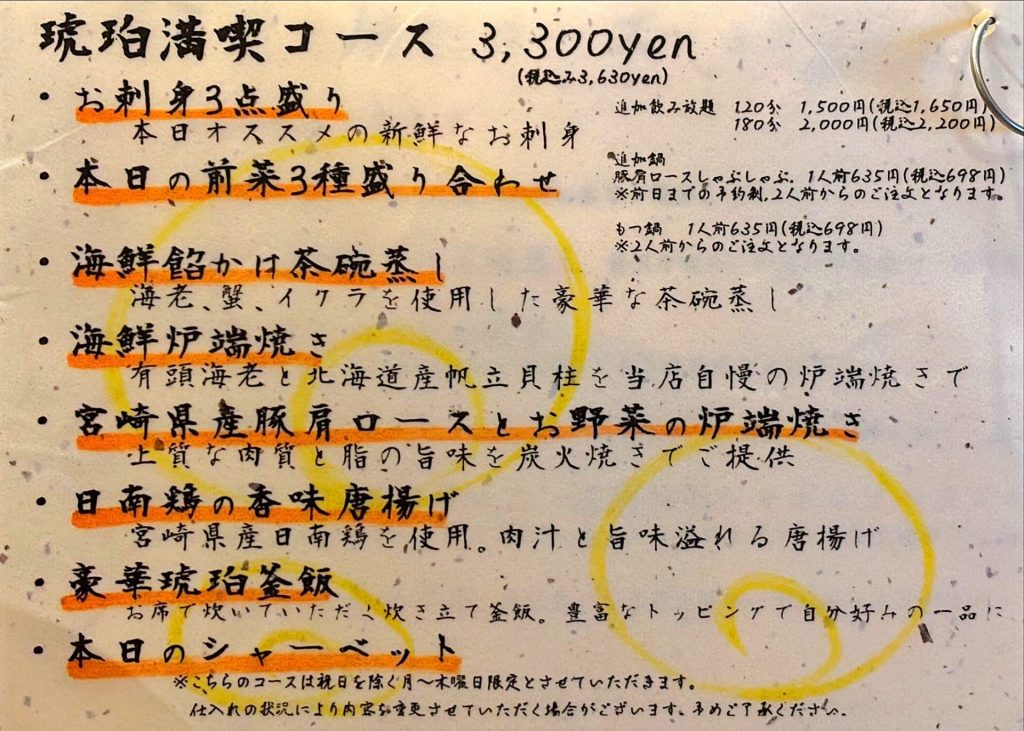 琥珀満喫コース 3,300yen
(税込み3,630yen)
・お刺身3点盛り
本日オススメの新鮮なお刺身
・本日の前菜3種盛り合わせ
・海鮮餡かけ茶碗蒸し
海老、蟹、イクラを使用した豪華な茶碗蒸し
・海鮮炉端焼き
有頭海老と北海道産帆立貝柱を当店自慢の炉端焼きで
・宮崎県産豚肩ロースとお野菜の炉端焼き
上質な肉質と脂の旨味を炭火焼きでご提供
・日南鶏の香味唐揚げ
宮崎県産日南鶏を使用。肉汁と旨味溢れる唐揚げ
・豪華琥珀釜飯
お席で炊いていただく炊き立て釜飯。豊富なトッピングで自分好みの一品に
・本日のシャーベット
※こちらのコースは祝日を除く月~木曜日限定とさせていただきます。
仕入れの状況により内容を変更させていただく場合がございます、予めご了承ください。
追加飲み放題 120分 1,500円(税込1,650円)
180分 2,000円(税込2,200円)
追加鍋
豚肩ロースしゃぶしゃぶ. 1人前635円(税込698円)
※前日までの予約制,2人前からのご注文となります。
もつ鍋 1人前635円(税込698円)
※2人前からのご注文となります。